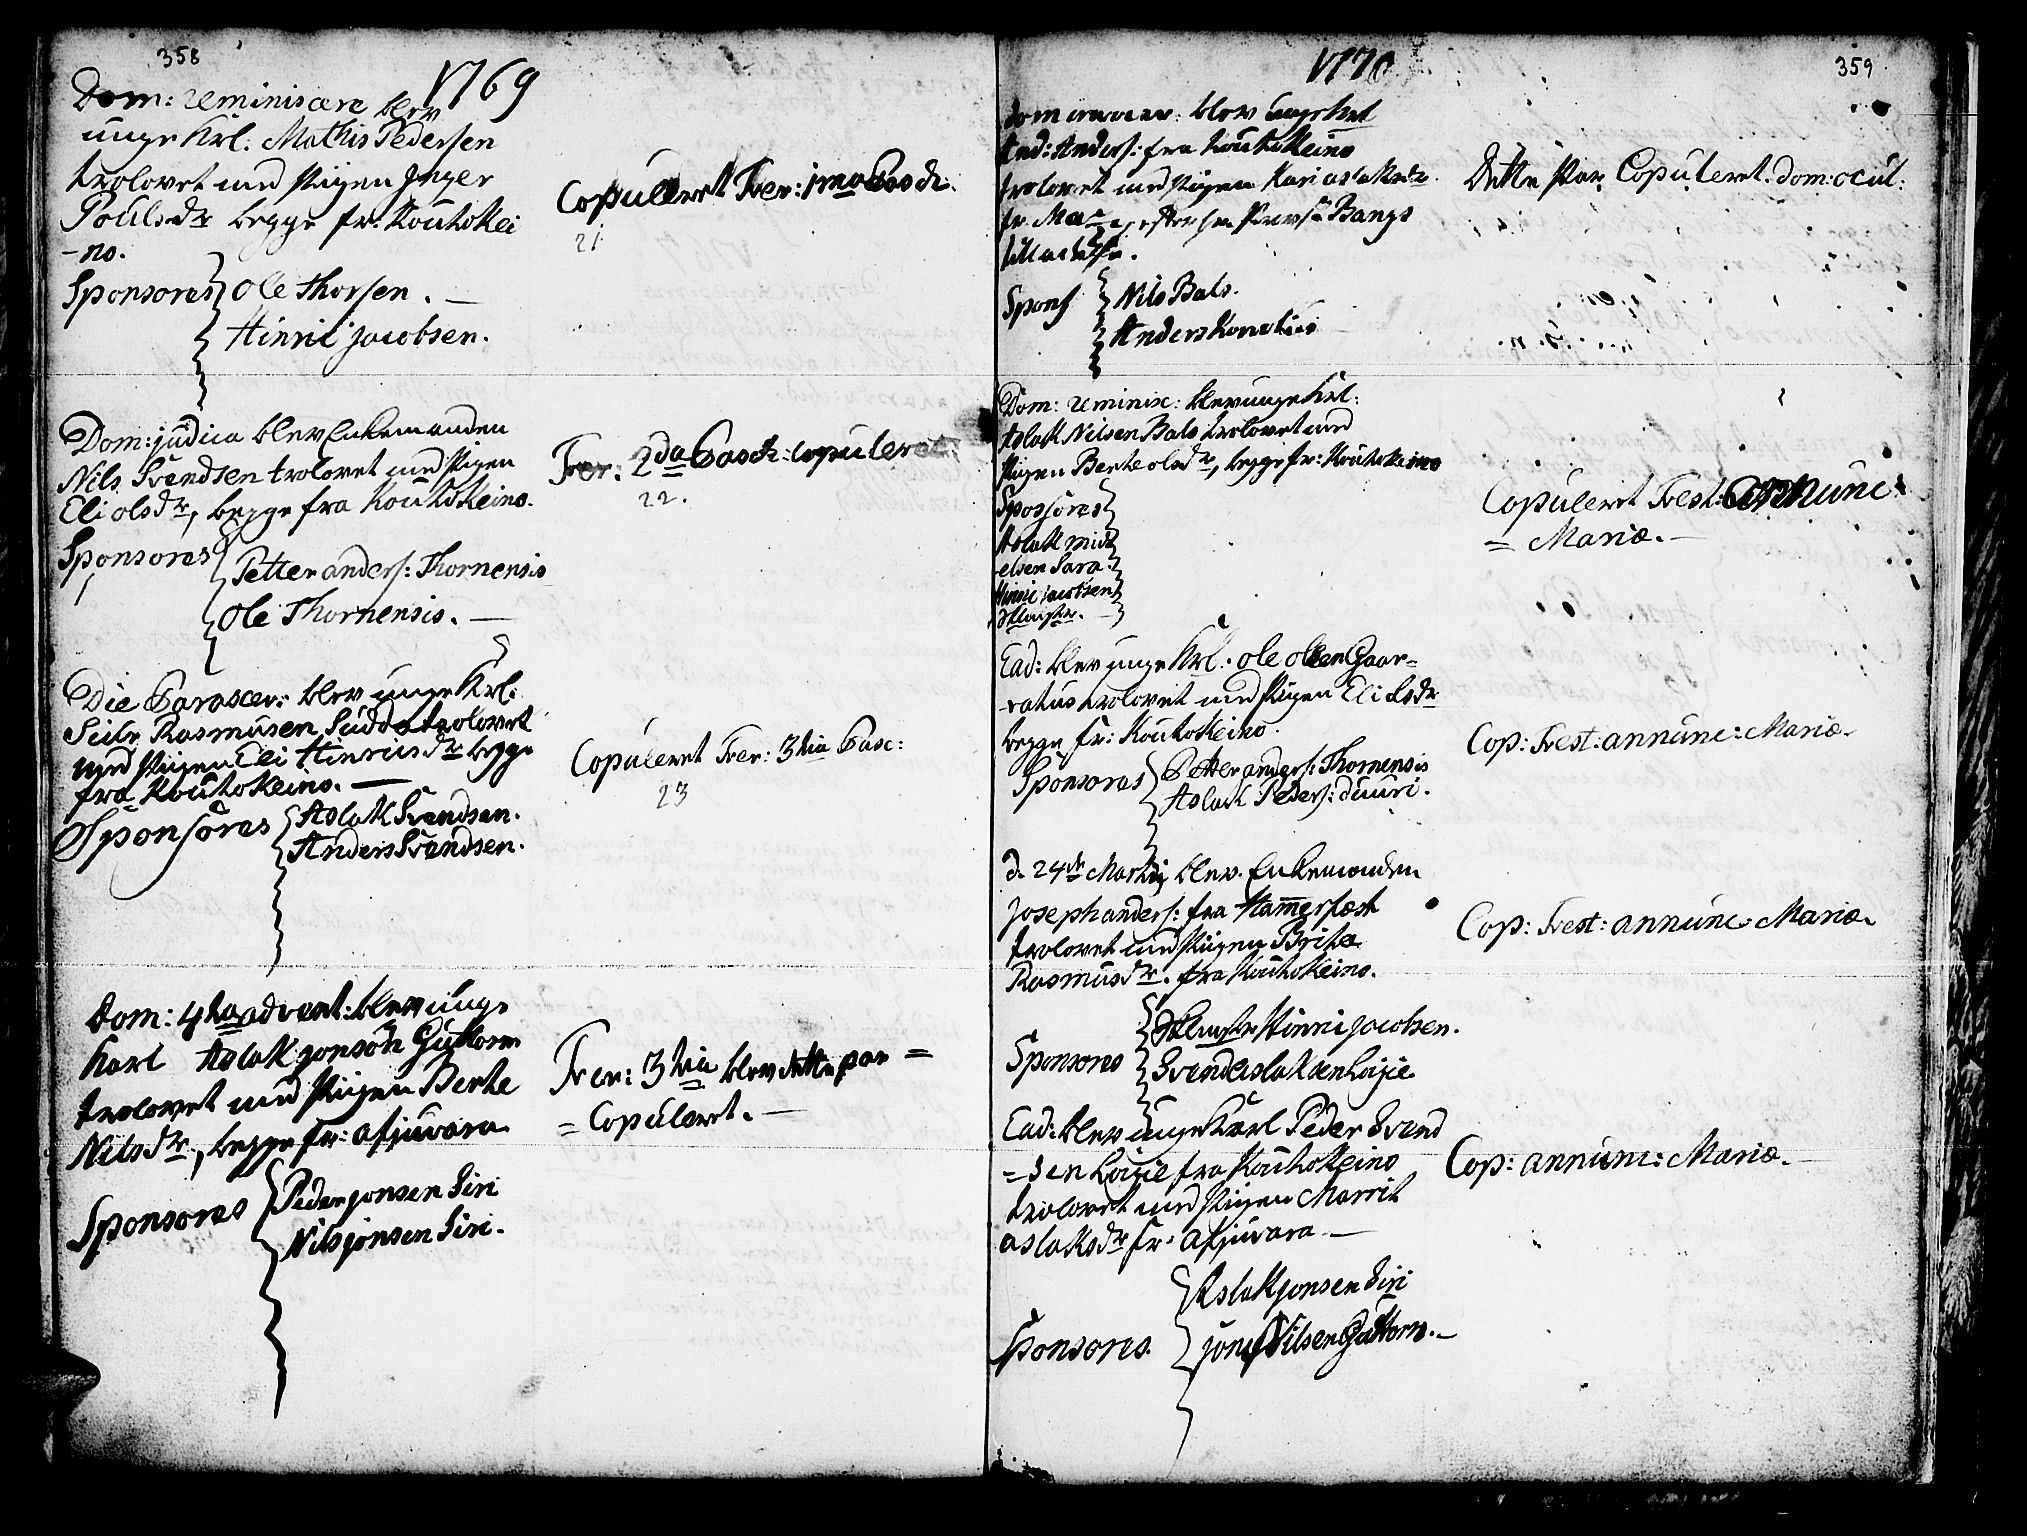 358
1769
Dom: reminiscere blev
unge Krl. Mathis Pedersen
trolovet med Pigen Inger
Poulsdr begge fr: Koutokei
-no.
Sponsores Ole Thorsen. —
Hinric Jacobsen.
Copuleret Fer: 1ma Pasch.
21
Dom: judica blev Enkemanden
Nils Svendsen trolovet med Pigen
Eli olsdr, begge fra Koutokeino.
Sponsores Petter anders: Thornensis
Ole Thornensis. —
Fer: 2da Pasch: copuleret
22.
Die Parascev: blev unge Krl:
Rasmusen trolovet
med Pigen Eli Hinricsdr begge
fra Koutokeino. —
Sponsores Aslak Svendsen.
Anders Svendsen.
Copuleret Fer: 3tia Pasc:
23
Dom: 4ta advent: blev unge
Karl Aslak jonsøn Guttorm
trolovet med Pigen Berte
Nilsdr, begge fr: afjuvara
Sponsores Peder jonsen Siri
Nils jonsen Siri.
Fer: 3tia blev dette par =
= Copuleret. —
359
1770
blev
And: Anders: fra Koutokeino
trolovet med Pigen Kari aslaksdr
fr. Bangs
Spons Nils Bals.
Anders
Dette Par Copuleret. Dom: ocul:
Dom: reminisc: blev unge Krl:
Aslak Nilsen Bals trolovet med
Pigen Berte olsdr, begge fr: Koutokeino
Sponsores
Aslak mich
-elsen Sara.
Hinric jacobsen
Copuleret Fest: annunc:
= Mariæ. —
Ead: blev unge Krl. Ole Olsen Gaar=
-ratus trolovet med Pigen Eli
begge fr: Koutokeino.
Sponsores Petter anders: Thornensis
Aslak Peders: duuri.
Cop: Fest: annunc: Mariæ.
d. 24de Martij blev Enkemanden
Joseph anders: fra Hamerfæst
trolovet med Pigen Brita
Rasmusdr. fra Koutokeino.
Sponsores Hinric jacobsen.
Svend aslaksen
Cop: Fest: annunc: Mariæ.
Ead: blev unge Karl Peder Svend
=sen fra Koutokeino
trolovet med Pigen Marrit
aslaksdr fr: afjuvara. —
Sponsores. Aslak jonsen Siri
Nilsen Guttorm. —
Cop: annunc: Mariæ. —